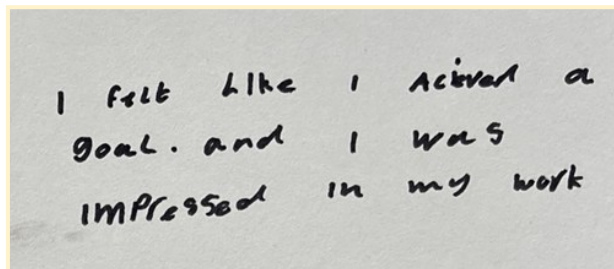 I felt like I acieved a
goal. and I was
impressed in my work